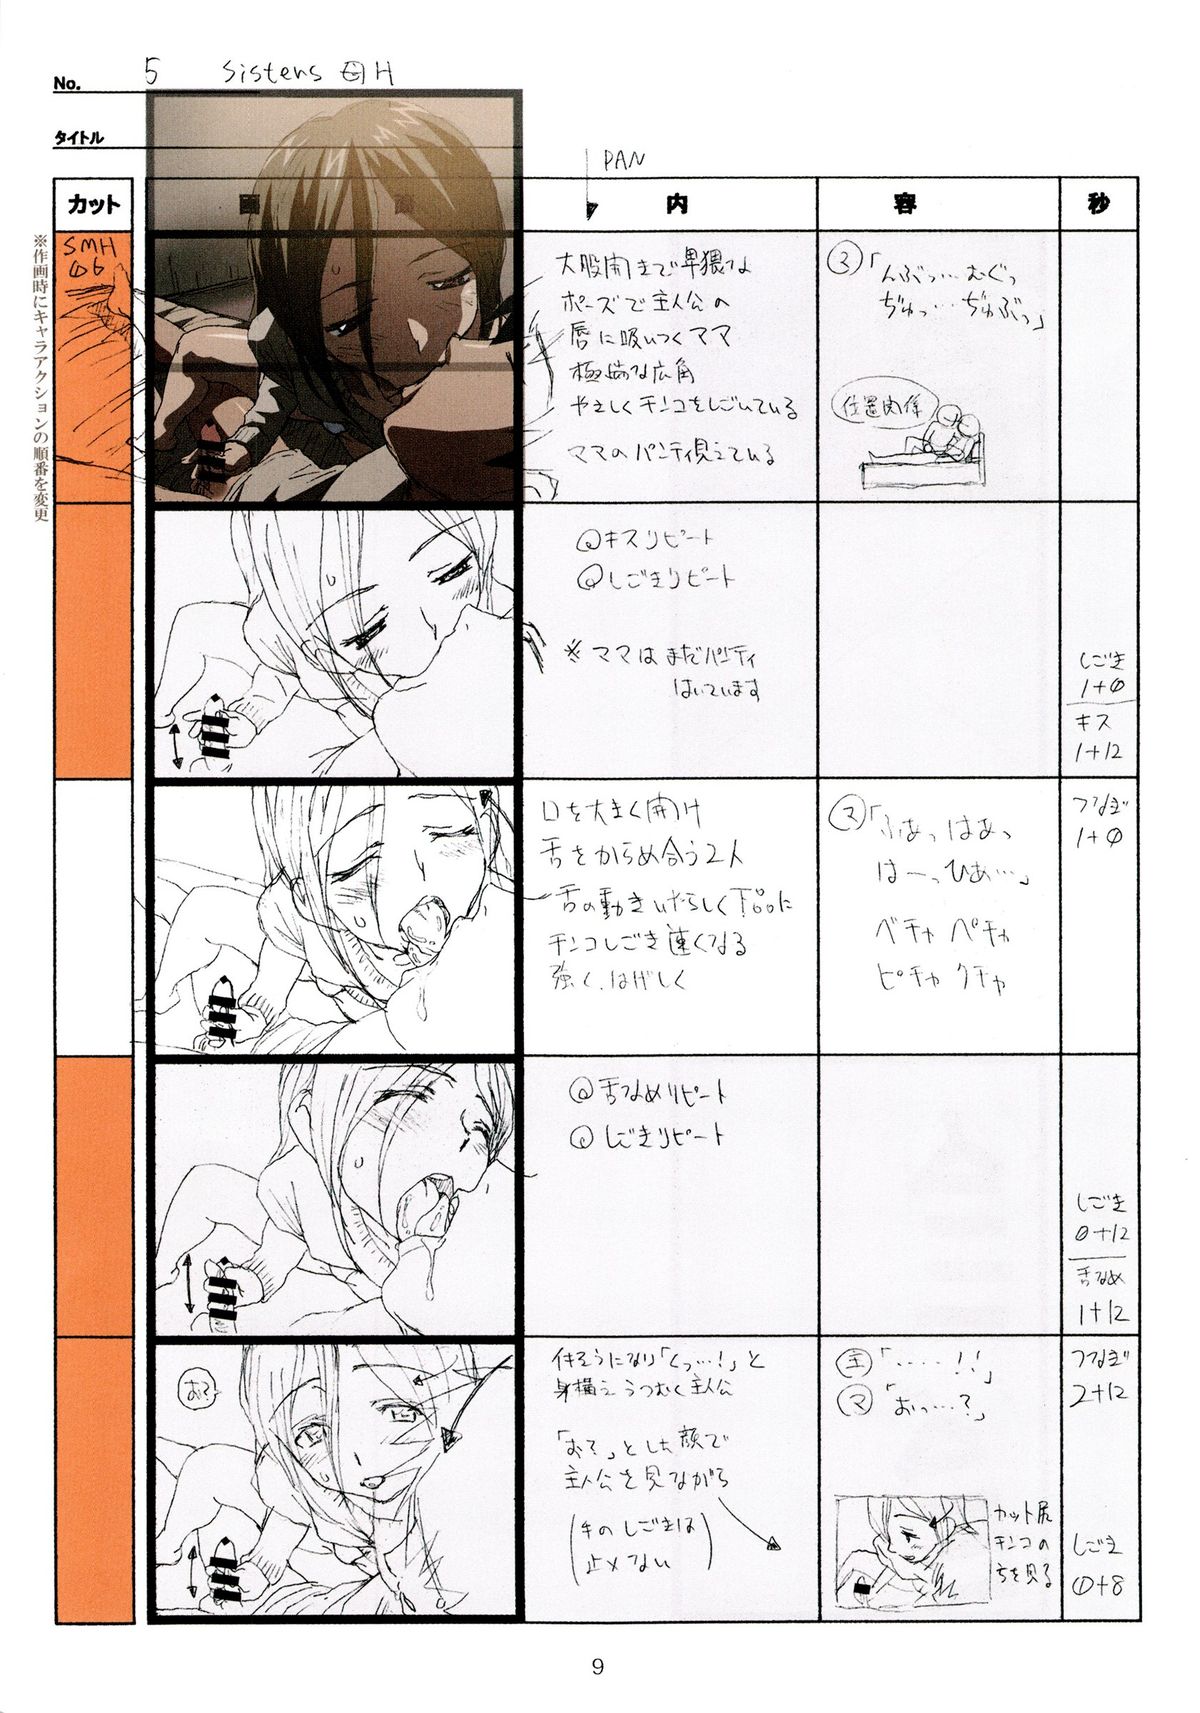 No. 5 Sisters H
タイトル
PAN
カット 画 面 内 容 秒
※作画時にキャラアクションの順番を変更
SMH
06
大股開きで卑猥な
ポーズで主人公の
唇に吸いつくママ
極端な広角
やさしくチンコをしごいている
ママのパンティ見えている
マ「んぶっ…むぐっ
ぢゅっ…ぢゅぶっ」
位置関係
キスリピート
しごきリピート
※ママはまだパンティ
はいています
しごき
1+0
キス
1+12
口を大きく開け
舌をからめ合う2人
舌の動きいやらしく
チンコしごき速くなる
強く、はげしく
マ「ふあっはあっ
はーっひあ…」
ベチャ ペチャ
ピチャ クチャ
つなぎ
1+0
舌なめリピート
しごきリピート
しごき
0+12
舌なめ
1+12
おっ
イキそうになり「くっ…!」と
身構え うつむく主人公
「おっ」とした顔で
主人公を見ながら
(手のしごきは
止メない)
主「……!!」
マ「おっ…?」
カット尻
チンコの
方を見る
つなぎ
2+12
しごき
0+8
9